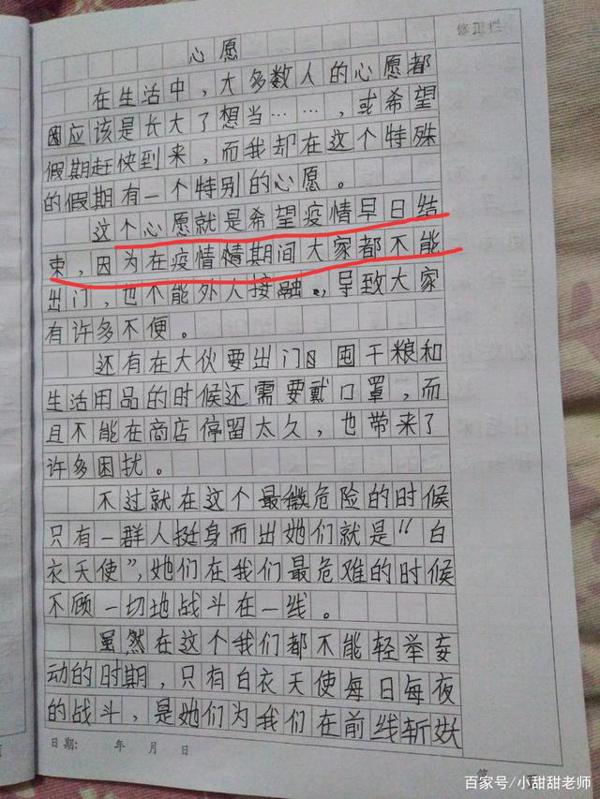 修正栏
心愿
在生活中，大多数人的心愿都
因应该是长大了想当……，或希望
假期赶快到来，而我却在这个特殊
的假期有一个特别的心愿。
这个心愿就是希望疫情早日结
束，因为在疫情情期间大家都不能
出门，也不能外人接融。导致大家
有许多不便。
还有在大伙要出门 囤干粮和
生活用品的时候还需要戴口罩，而
且不能在商店停留太久，也带来了
许多困扰。
不过就在这个最微危险的时候
只有一群人挺身而出她们就是“白
衣天使”，她们在我们最危难的时候
不顾一切地战斗在一线。
虽然在这个我们都不能轻举妄
动的时期，只有白衣天使每日每夜
的战斗，是她们为我们在前线斩妖
日期： 年 月 日
第
百家号/小甜甜老师